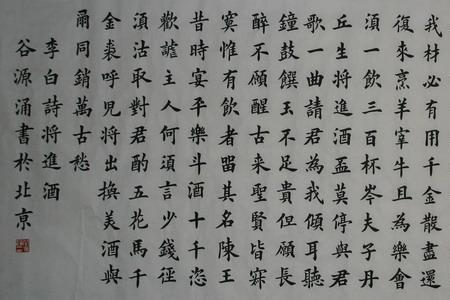 我材必有用千金散盡還
復來烹羊宰牛且為樂會
湏一飲三百杯岑夫子丹
丘生將進酒盃莫停與君
歌一曲請君為我傾耳聽
鐘鼓饌玉不足貴但願長
醉不願醒古来聖賢皆寂
寞惟有飲者畱其名陳王
昔時宴平樂斗酒十千恣
歡謔主人何湏言少錢徑
湏沽取對君酌五花馬千
金裘呼兒將出換美酒與
爾同銷萬古愁
李白詩將進酒
谷源涌書於北亰